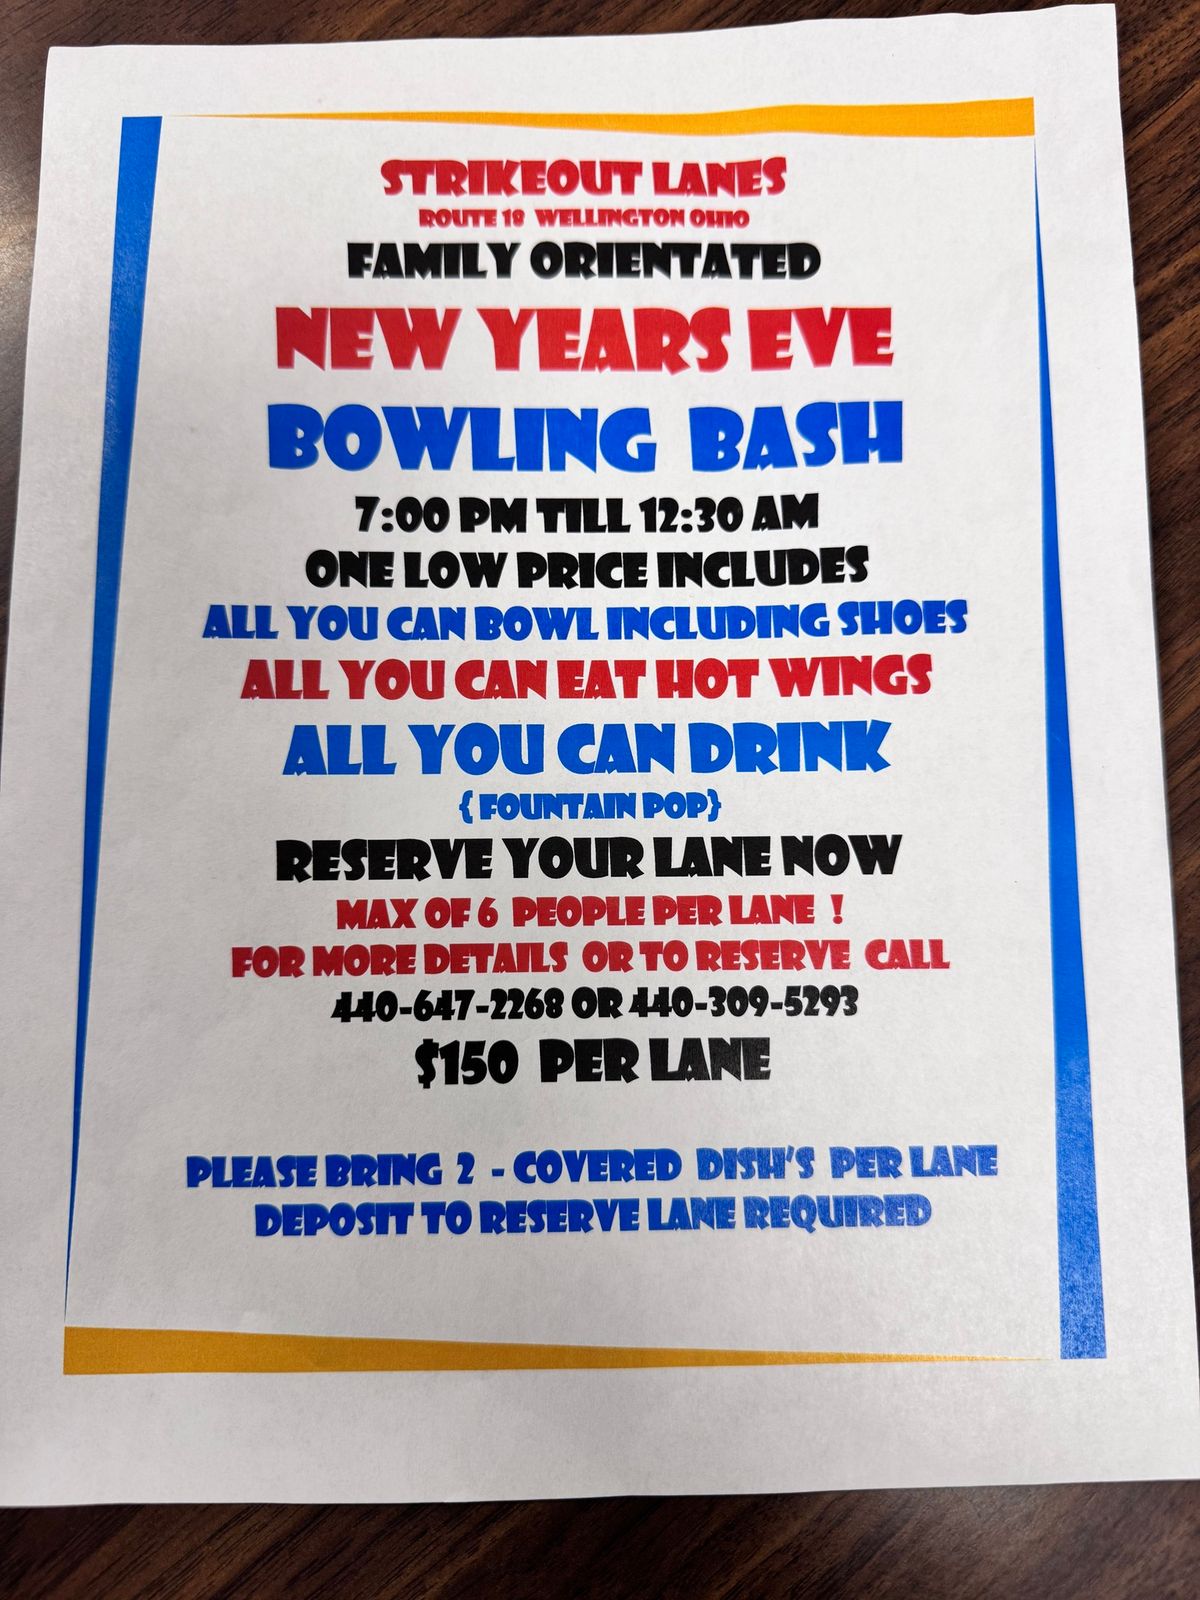 STRIKEOUT LANES
ROUTE 18 WELLINGTON OHIO
FAMILY ORIENTATED
NEW YEARS EVE
BOWLING BASH
7:00 PM TILL 12:30 AM
ONE LOW PRICE INCLUDES
ALL YOU CAN BOWL INCLUDING SHOES
ALL YOU CAN EAT HOT WINGS
ALL YOU CAN DRINK
{ FOUNTAIN POP}
RESERVE YOUR LANE NOW
MAX OF 6 PEOPLE PER LANE !
FOR MORE DETAILS OR TO RESERVE CALL
440-647-2268 OR 440-309-5293
$150 PER LANE
PLEASE BRING 2 - COVERED DISH'S PER LANE
DEPOSIT TO RESERVE LANE REQUIRED